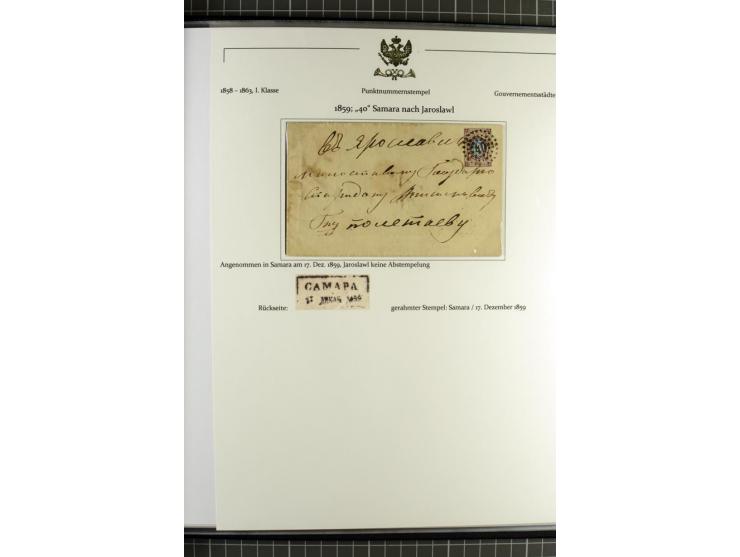 1858 – 1863, I. Klasse
Punktnummernstempel
Gouvernementsstädte
1859; „40" Samara nach Jaroslawl
Въ Ярославль
Милостивому Государю
Гну Полетаеву
Angenommen in Samara am 17. Dez. 1859, Jaroslawl keine Abstempelung
САМАРА
Rückseite:
gerahmter Stempel: Samara / 17. Dezember 1859